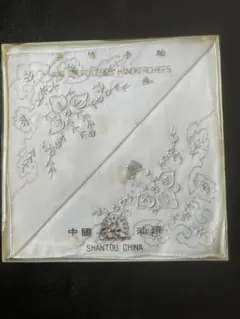 HAND EMBROIDERED HANDKERCHIEFS
中國 汕頭
SHANTOU CHINA